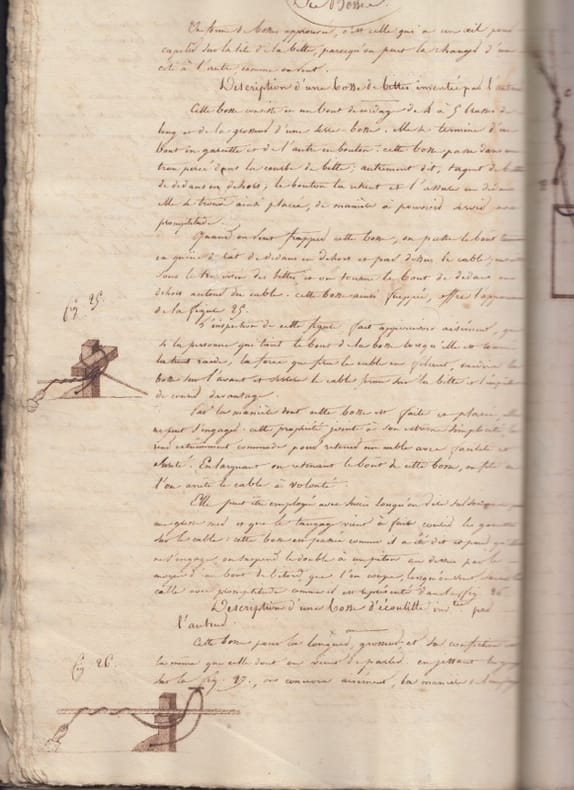 Des Bosses.
En forme de bosses à pouvoir, c'est celle qui a un œil pour
capeler sur la tête de la bitte, parcequ'on peut la changer d'un
côté à l'autre comme on veut.
Description d'une bosse de bittes inventée par l'auteur
Cette bosse consiste en un bout de cordage de 4 à 5 brasses de
long et de la grosseur d'une serre-bosse. Elle se termine d'un
bout en garcette et de l'autre en bouton : cette bosse passe dans un
trou percé dans la courbe de bitte ; autrement dit,
de dedans en dehors ; le bouton la retient et l'assure en dedans
elle se trouve ainsi placée, de manière à pouvoir servir avec
promptitude.
Quand on veut frapper cette bosse, on passe le bout
en queue de rat de dedans en dehors et par dessus le cable ;
sous le de bittes et on tourne le bout de dedans en
dehors autour du cable. cette bosse ainsi frappée, offre l'apparence
de la figure 25.
fig. 25.
L'inspection de cette figure fait appercevoir aisément, que
si la personne qui tient le bout de la bosse lorsqu'elle est
la tient raide, la force que fera le cable en filant, raidira la
bosse sur l'avant et serrera le cable sur la bitte et l'empêchera
de courir davantage.
Par la manière dont cette bosse est faite et placée, elle
ne peut s'engager. cette propriété jointe à son extrême simplicité la
rend extrêmement commode pour retenir un cable avec facilité et
sûreté. En larguant ou retenant le bout de cette bosse, on file ou
l'on arrête le cable à volonté.
Elle peut être employée avec succès lorsqu'on
une grosse mer et que le tangage vient à faire courir les garcettes
sur le cable : cette bosse en passée comme il a été dit et pour qu'elle
ne s'engage on suspend le double à un piton au dessus par le
moyen d'un bout de bitord que l'on coupe, lorsqu'on veut le
cable avec promptitude comme il est représenté dans la fig 26.
Description d'une bosse d'écoutille par
l'auteur.
fig. 26.
Cette bosse pour la longueur, grosseur et sa confection est
la même que celle dont on vient de parler. en jettant les yeux
sur la fig. 27., on concevra aisément, la manière